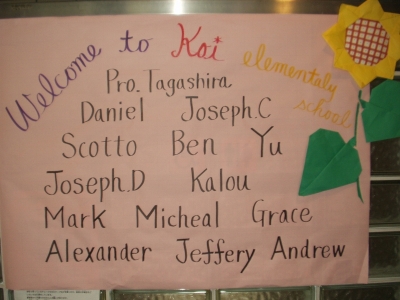 Welcome to Kai elementaly school
Pro. Tagashira
Daniel Joseph.C
Scotto Ben Yu
Joseph.D Kalou
Mark Micheal Grace
Alexander Jeffery Andrew